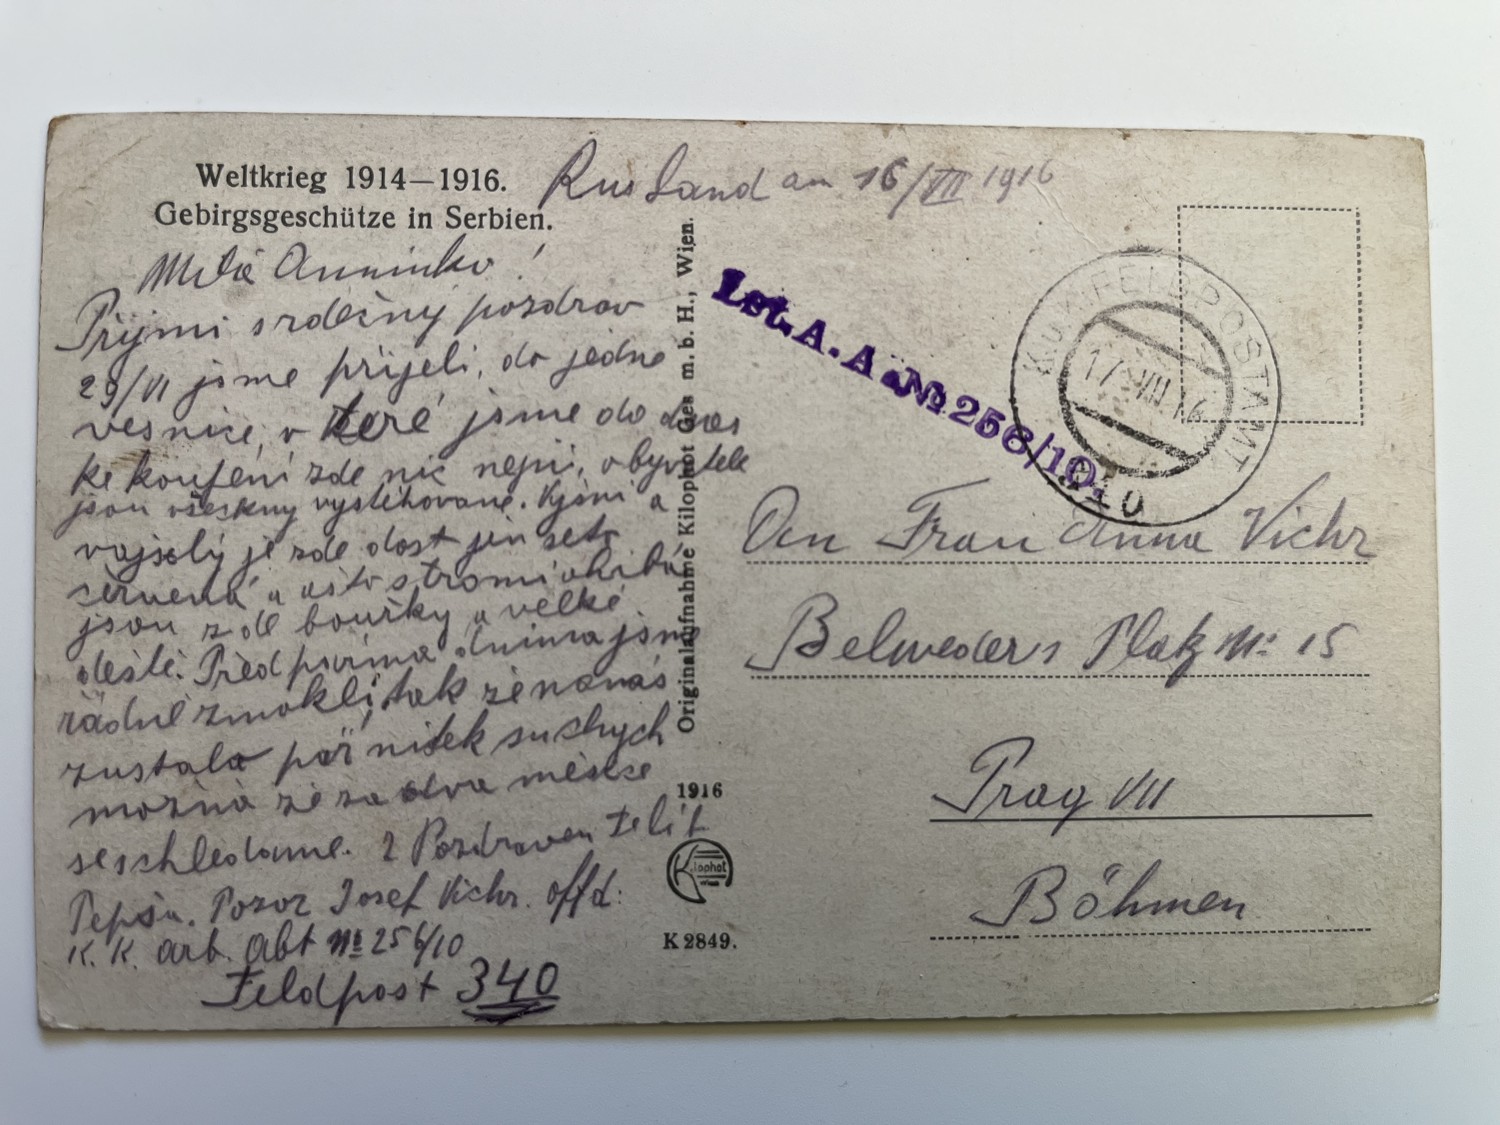 Weltkrieg 1914—1916.
Gebirgsgeschütze in Serbien.
Rusland am 16/VII 1916
Milá Anninko!
Přijmi srdečný pozdrav
29/VI jsme přijeli, do jedne
vesnice, v které jsme do dnes
ke koupení zde nic nejni, obyvatele
jsou všeckny vystěhované. Kjsni a
vojska je zde dost jen
červená a
jsou zde bouřky a velké
deště. Před dnima jsme
řádně zmokli, tak že na nás
zustalo pár nitek suchych
možná že za dva měsíce
seschledame. Pozdraven
Pepša. Pozor Josef Vichr. offd:
K. K. arb. Abt № 256/10
Feldpost 340
Originalaufnahme Kilophot Ges. m. b. H., Wien.
1916
Kilophot
K 2849.
Lst. A. A. № 256/10.
K.u.K. FELDPOSTAMT
17 VII 16
340
An Frau Anna Vichr
Belweders Platz № 15
Prag VII
Böhmen